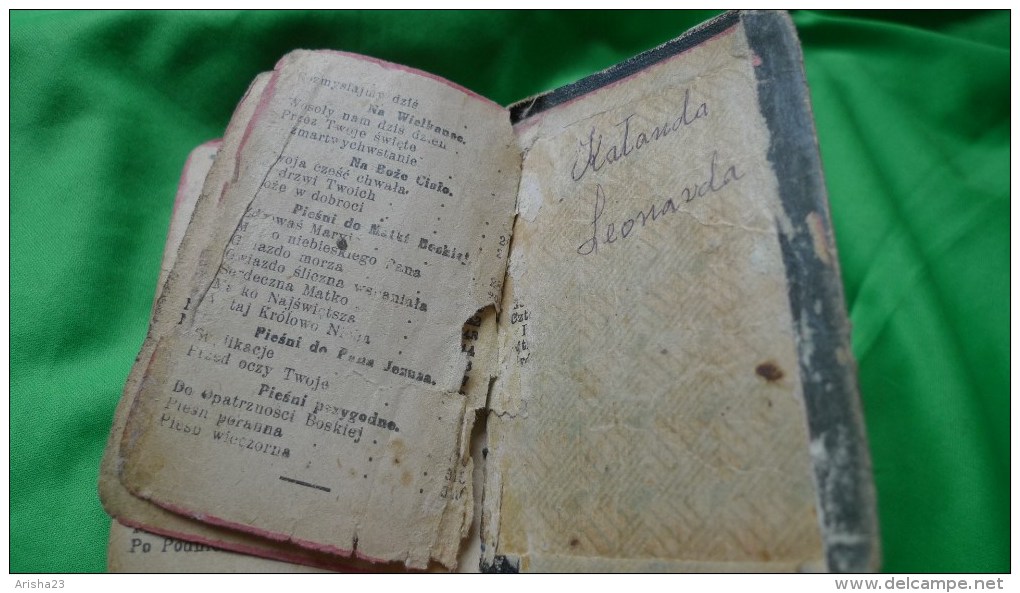 dziś
Na Wielkanoc.
nam dziś dzień
Przez Twoje święte
zmartwychwstanie
Na Boże Ciało.
cześć chwała
drzwi Twoich
w dobroci
Pieśni do Matki Boskiej.
niebieskiego Pana
morza
Gwiazdo śliczna wspaniała
Serdeczna Matko
Najświętsza
Królowo
Pieśni do Pana Jezusa.
Przed oczy Twoje
Pieśni przygodne.
Do Opatrzności Boskiej
Pieśń poranna
Pieśń wieczorna
Po
Kałanda
Leonarda
Arisha23
www.delcampe.net